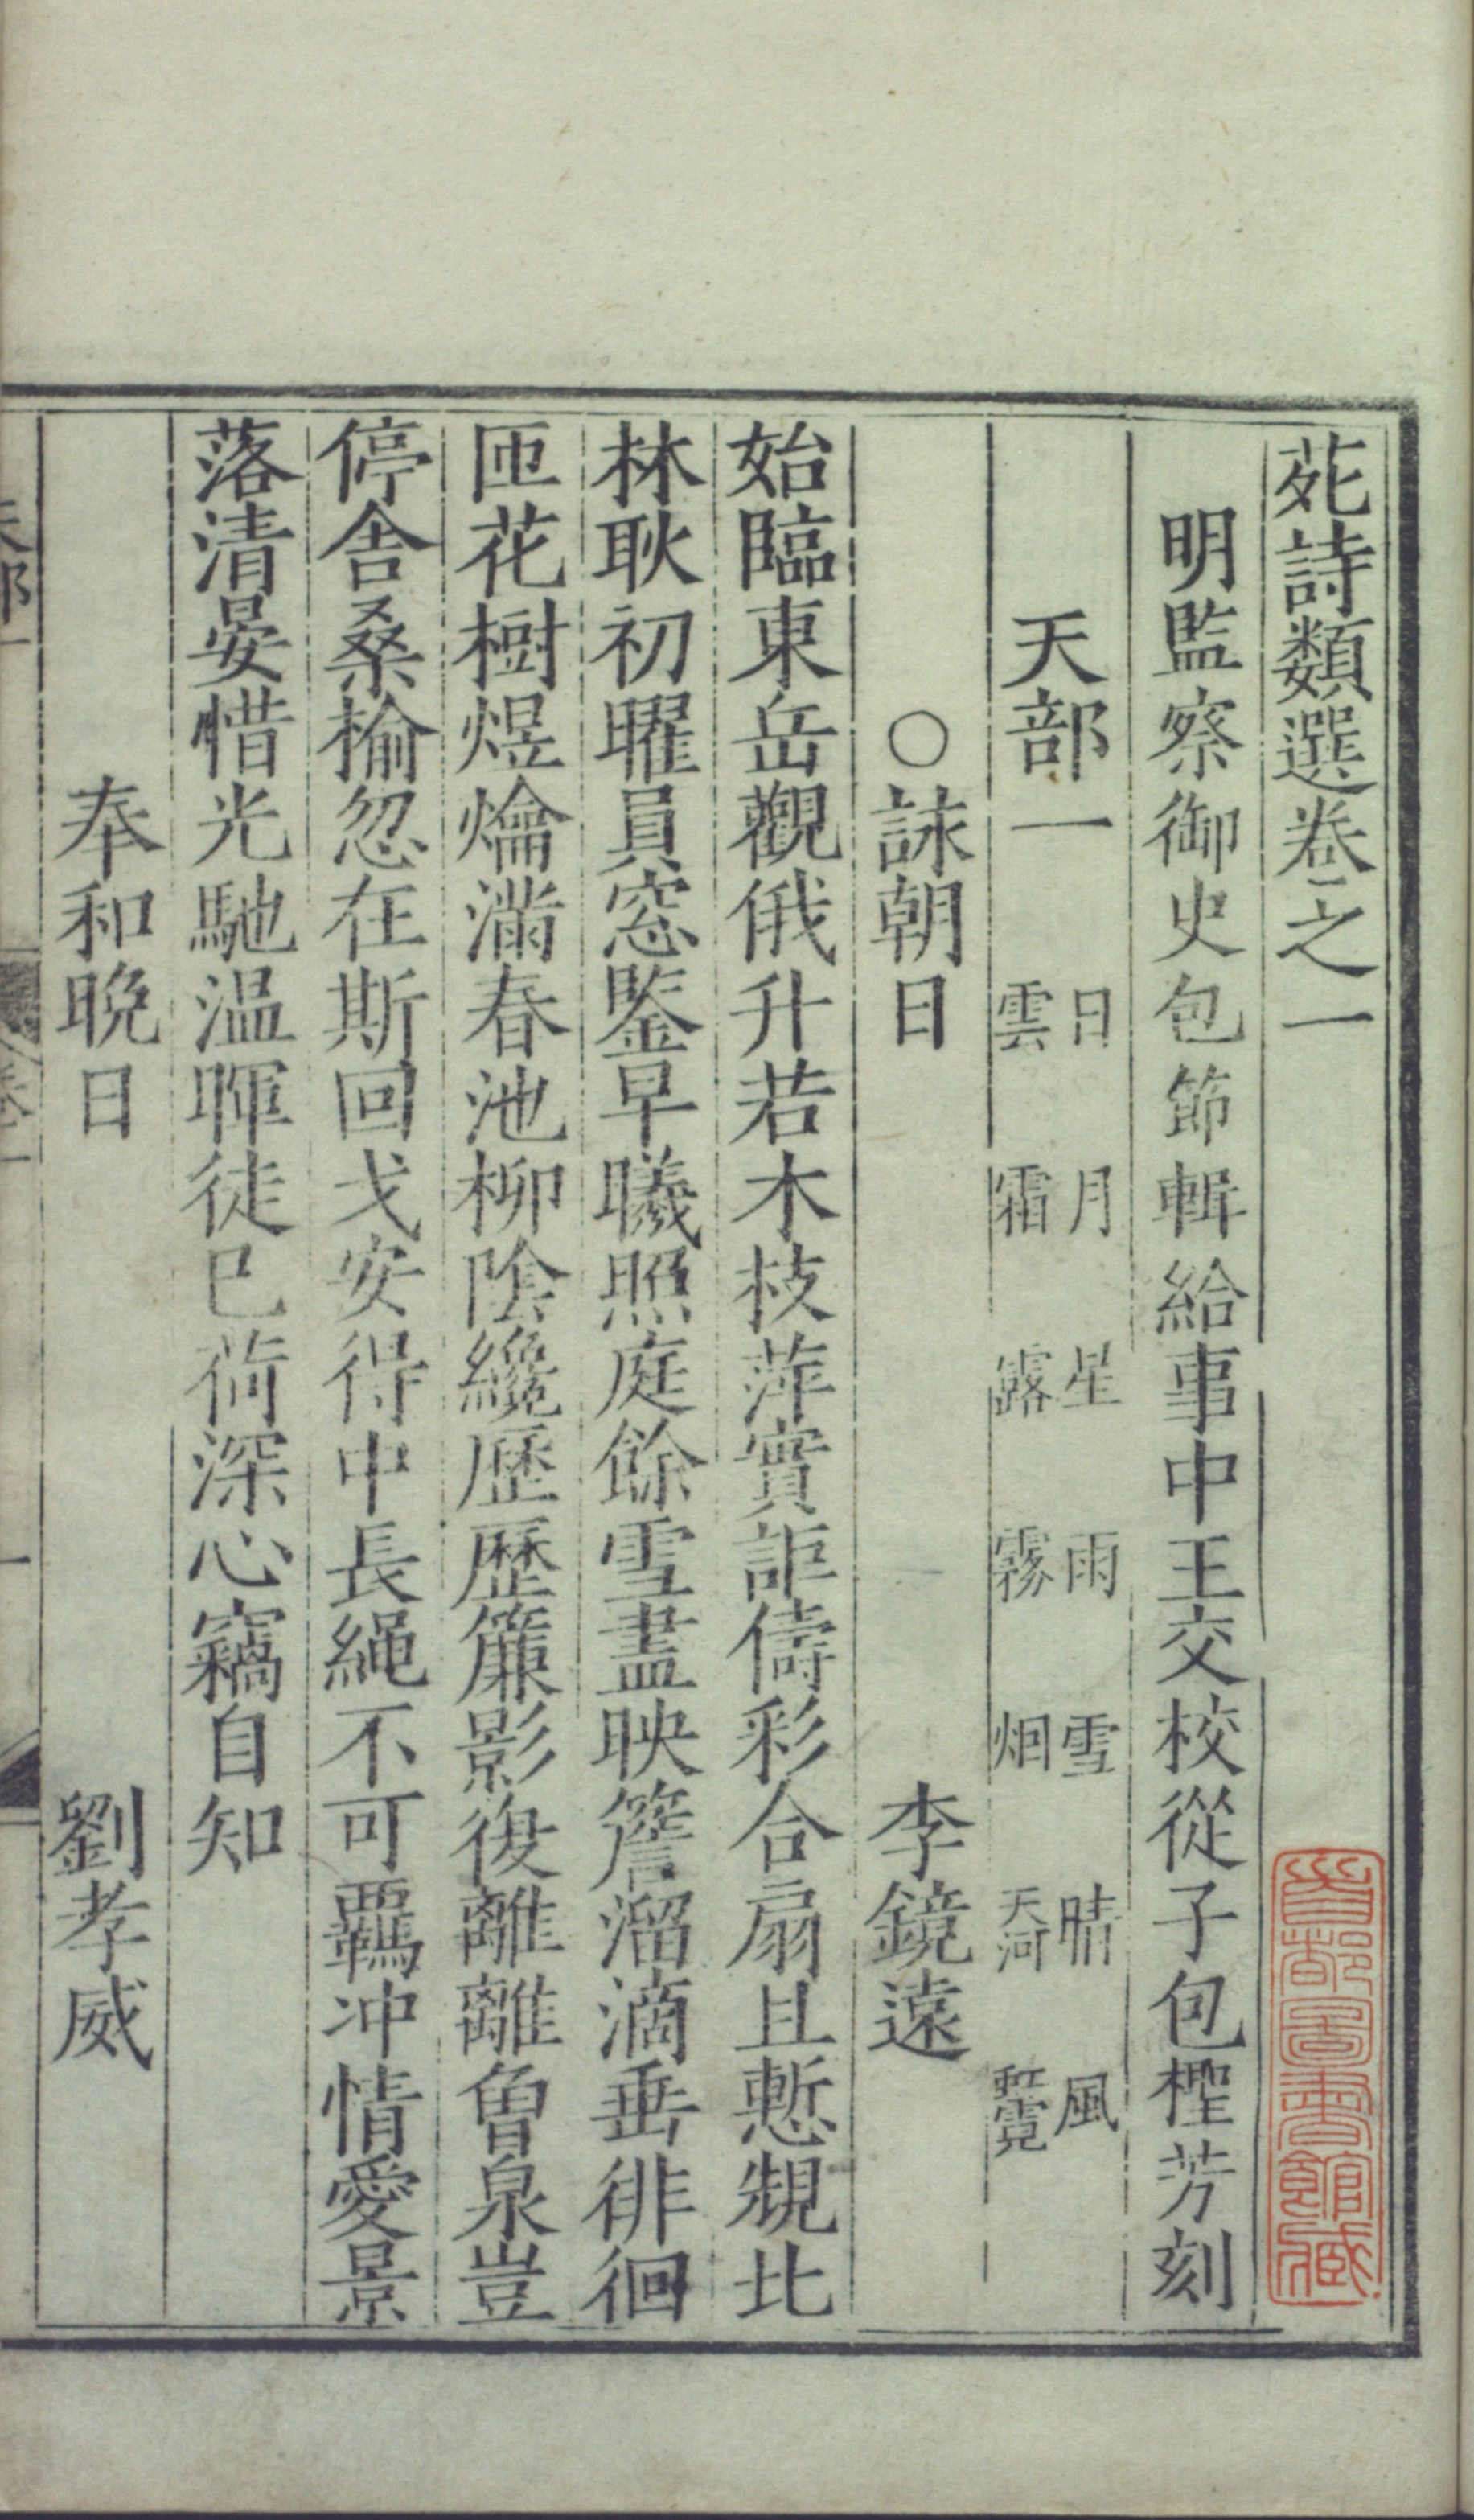 苑詩類選卷之一
明監察御史包節輯給事中王交校從子包檉芳刻
天部一
日 月 星 雨 雪 晴 風
雲 霜 露 霧 烟 天河 虹霓
○詠朝日 李鏡遠
始臨東岳觀俄升若木枝萍實詎儔彩合扇且慙䂓北
林耿初曜員窓鑒早曦照庭餘雪盡映簷溜滴垂徘徊
匝花樹煜爚滿春池柳陰纔歷歷簾影復離離魯泉豈
停舍桑榆忽在斯回戈安得中長繩不可羈冲情愛景
落清晏惜光馳温暉徒巳荷深心竊自知
奉和晚日 劉孝威
天部一
卷一
一
首都圖書館藏